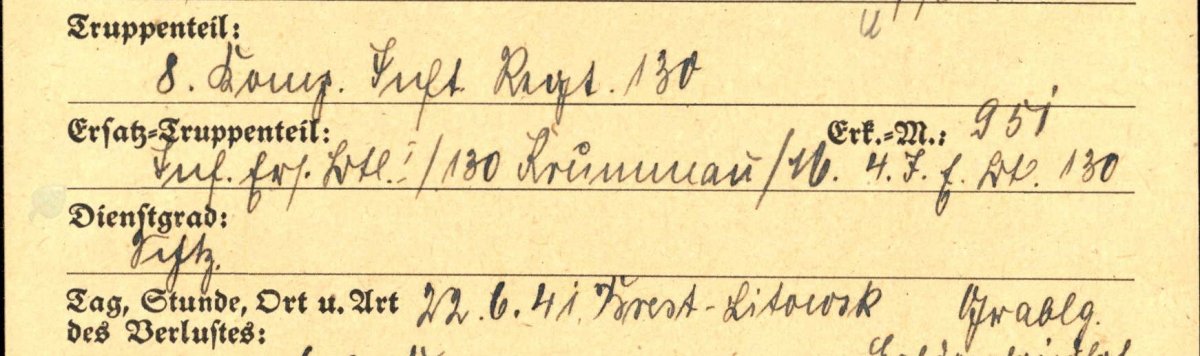 Truppenteil:
8. Komp. Inft. Regt. 130
Ersatz-Truppenteil: Erk.-M.: 951
Inf. Ers. Btl. I/130 Krummau/M. 4. I. E. Bt. 130
Dienstgrad:
Schtz.
Tag, Stunde, Ort u. Art 22.6.41. Brest-Litowsk Grablg.
des Verlustes: